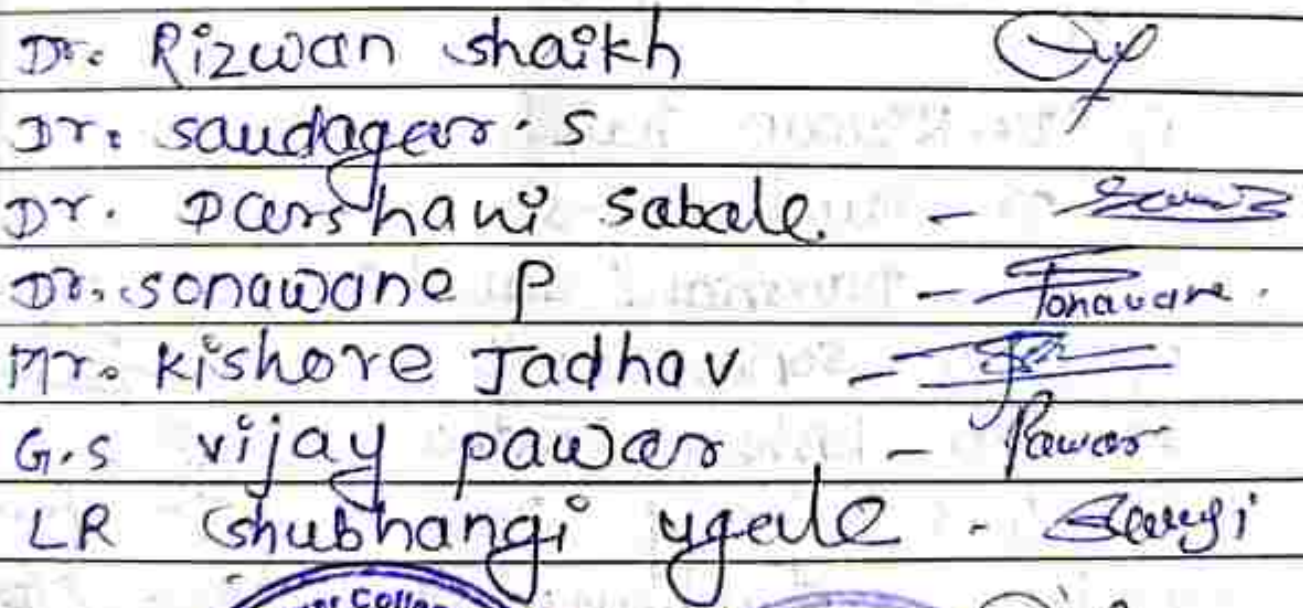 Dr. Rizwan shaikh
Dr. saudagar. S
Dr. Darshani Sabale -
Dr. sonawane P - Sonavane.
Mr. Kishore Jadhav -
G.S vijay pawar - Pawar
LR Shubhangi ygale -